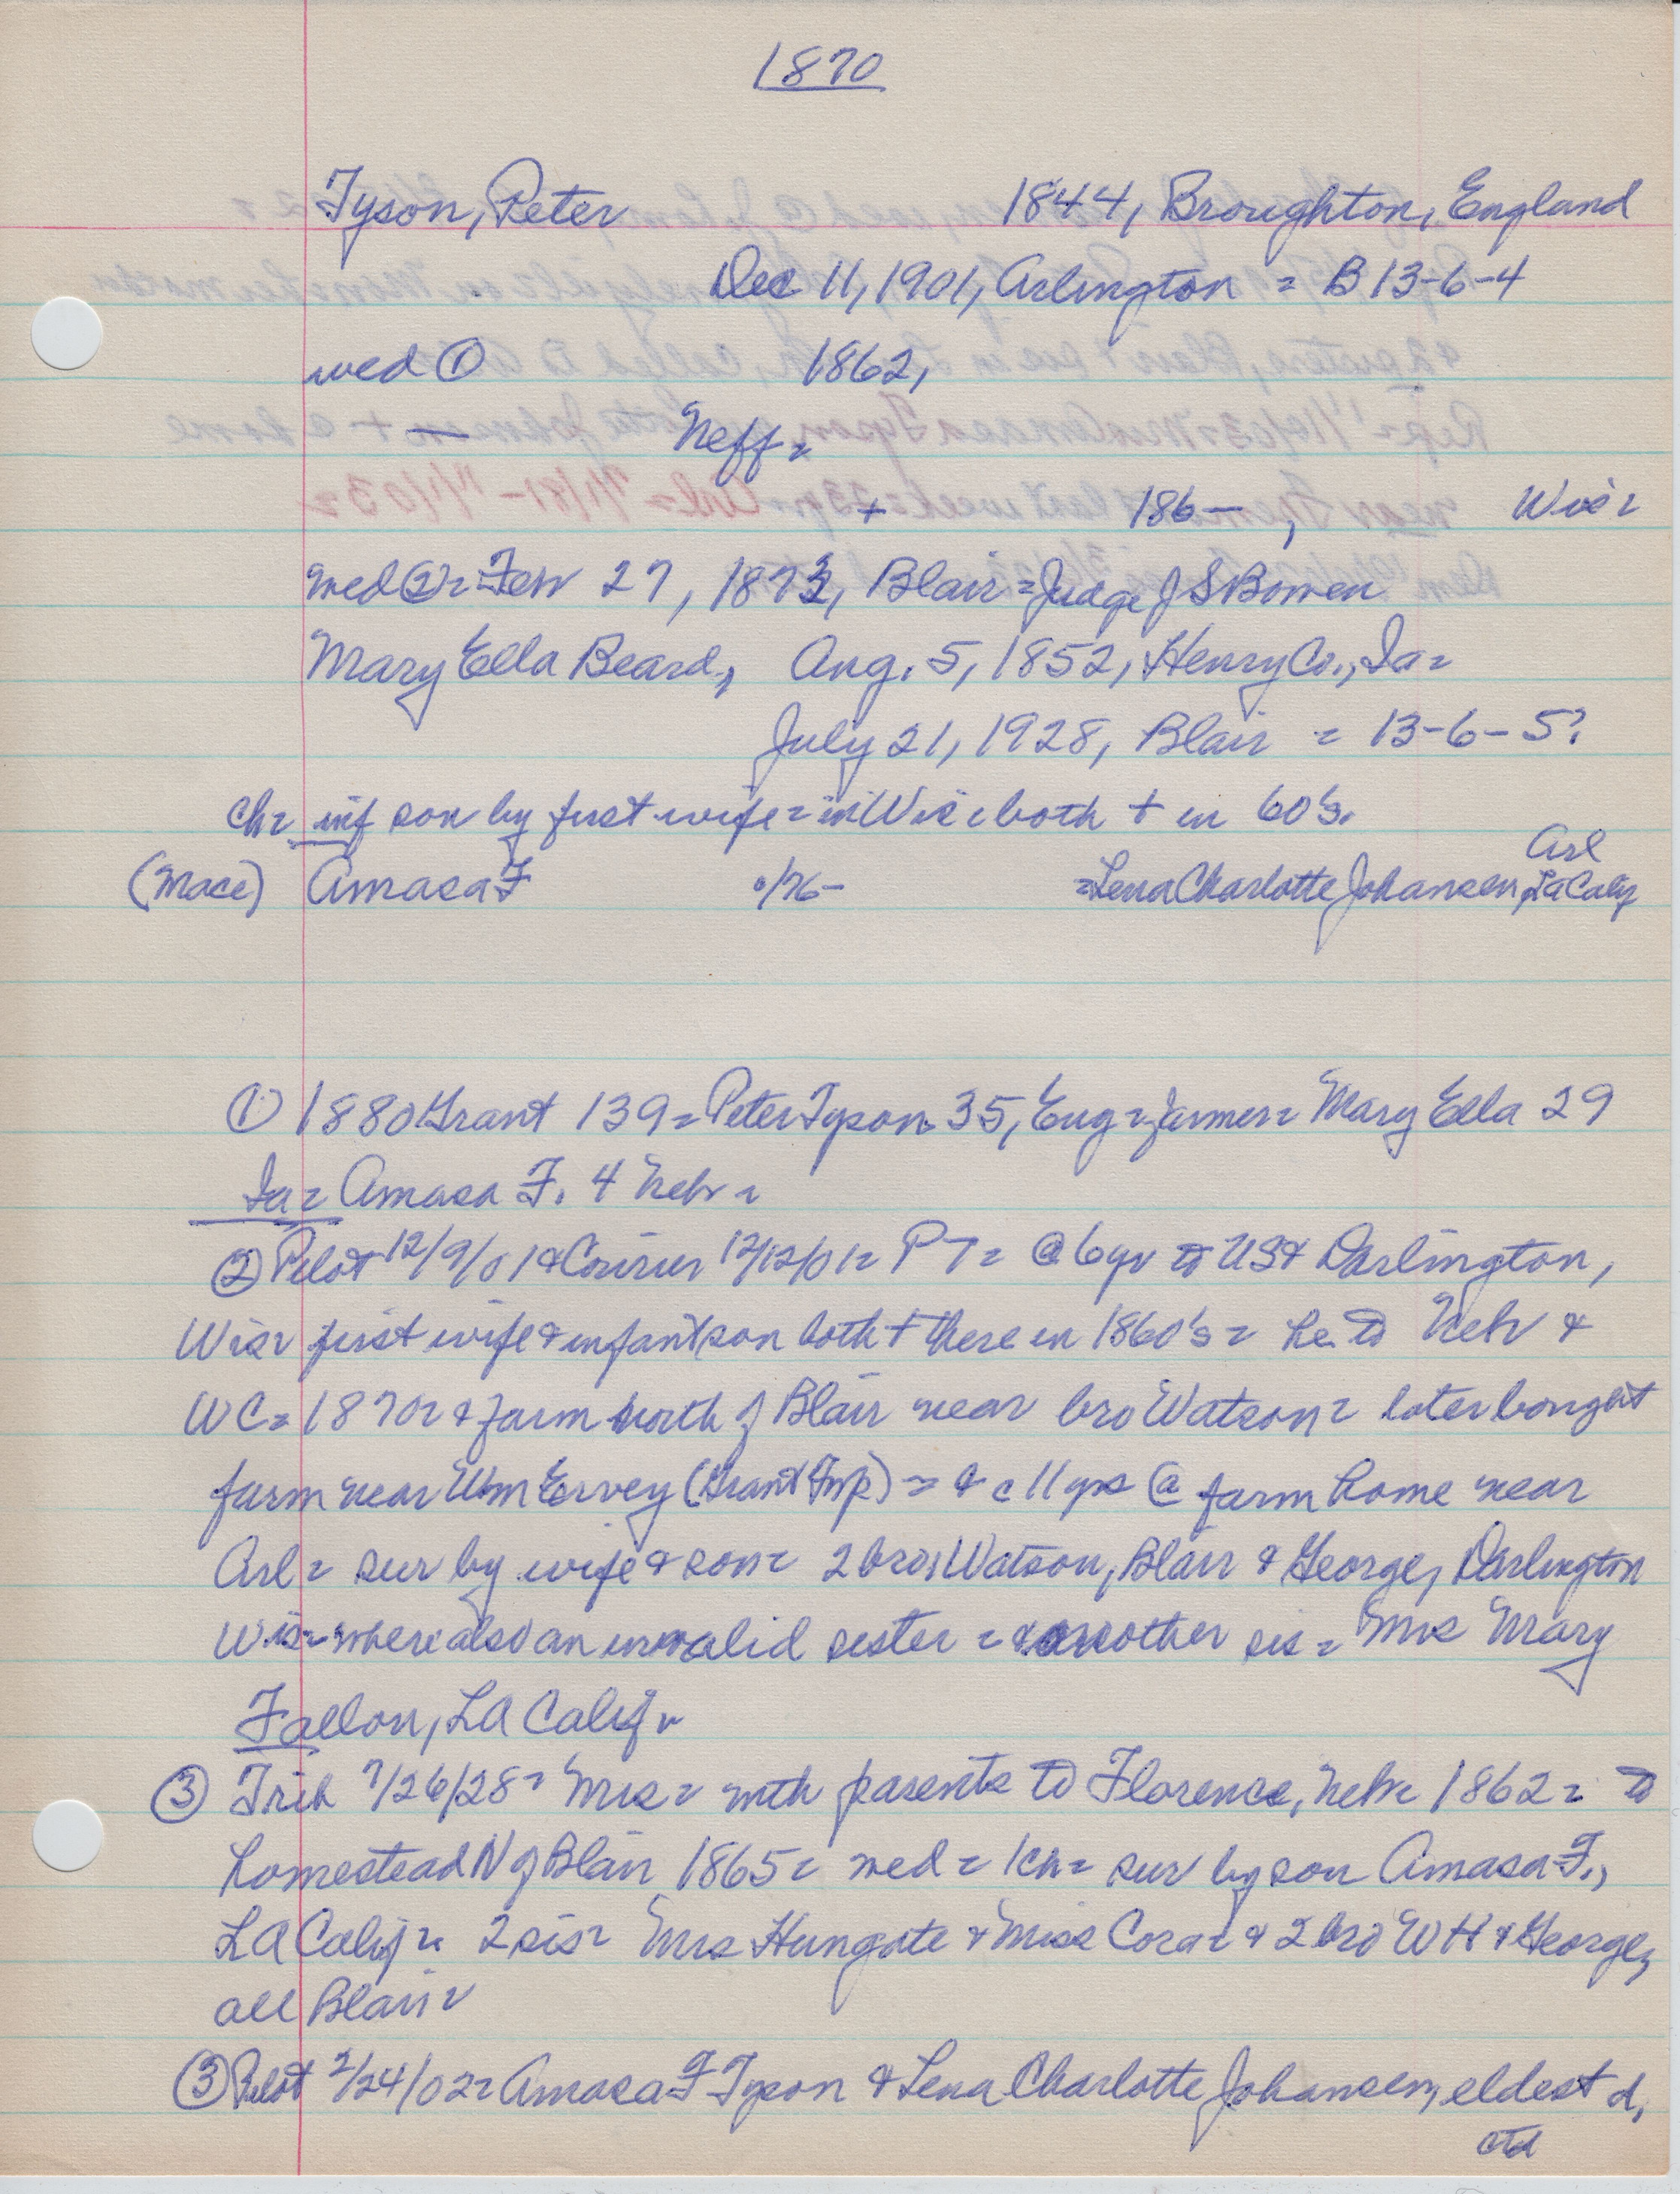 1870
Tyson, Peter 1844, Broughton, England
Dec 11, 1901, Arlington = B 13-6-4
wed ① 1862,
— Neff =
+ 186—, Wis =
wed ② = Feb 27, 1873, Blair = Judge J S Bowen
Mary Ella Beard, Aug. 5, 1852, Henry Co., Ia =
July 21, 1928, Blair = 13-6-5?
Ch = inf son by first wife = in Wis = both + in 60's.
Arl
(Mace) Amasa F °/76- = Lena Charlotte Johansen, LA Calif
① 1880 Grant 139 = Peter Tyson 35, Eng = farmer = Mary Ella 29
Ia = Amasa F. 4 Nebr =
② Pilot 12/9/01 & Courier 12/12/01 = P T = @ 6 yr to US & Darlington,
Wis = first wife & infant son both + there in 1860's = he to Nebr &
WC = 1870 = & farm north of Blair near bro Watson = later bought
farm near Wm Ervey (Grant Twp) = & c 11 yrs @ farm home near
Arl = sur by wife & son = 2 bros, Watson, Blair & George, Darlington
Wis = where also an invalid sister = & another sis = Mrs Mary
Fallon, LA Calif =
③ Trib 7/26/28 = Mrs = with parents to Florence, Nebr 1862 = to
homestead N of Blair 1865 = wed = 1 ch = sur by son Amasa F.,
LA Calif = 2 sis = Mrs Hungate & Miss Cora = & 2 bro W H & George,
all Blair =
③ Pilot 2/24/02 = Amasa F Tyson & Lena Charlotte Johansen, eldest d,
ctd